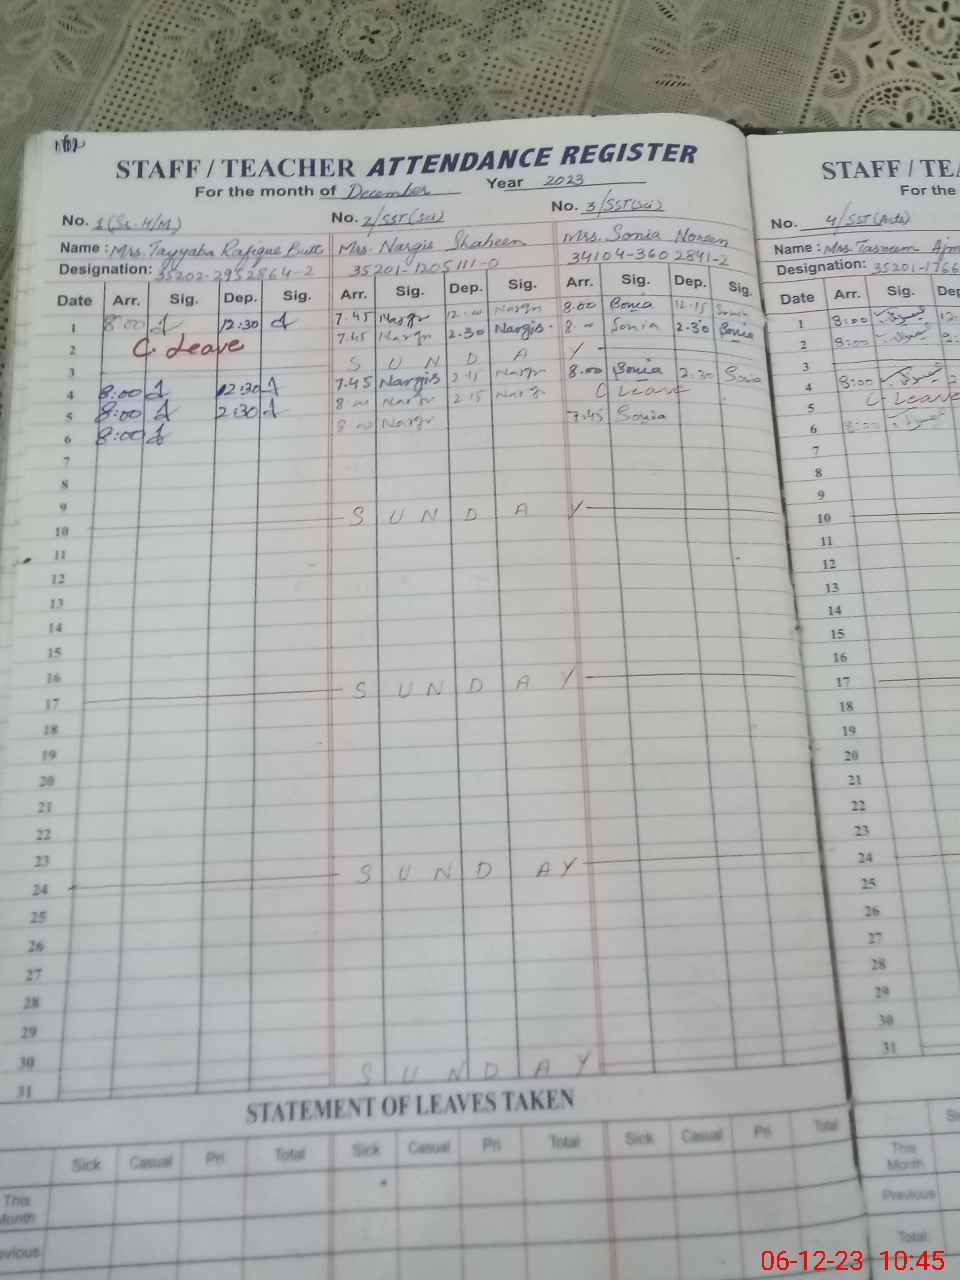 STAFF / TEACHER ATTENDANCE REGISTER
For the month of December Year 2023
No. 1 (Sr. H/M) No. 2/SST(Sci) No. 3/SST(Sci)
Name: Mrs. Tayyaba Rafique Butt Mrs. Nargis Shaheen Mrs. Sonia Noreen
Designation: 35202-2952864-2 35201-1205111-0 34104-3602841-2
Date Arr. Sig. Dep. Sig. Arr. Sig. Dep. Sig. Arr. Sig. Dep. Sig.
1 8:00 12:30 7.45 Nargis 12.00 Nargis 8.00 Sonia 12.15 Sonia
2 C. Leave 7.45 Nargis 2.30 Nargis 8.00 Sonia 2.30 Sonia
3 S U N D A Y
4 8:00 12:30 7.45 Nargis 2.15 Nargis 8.00 Sonia 2.30 Sonia
5 8:00 2:30 8.00 Nargis 2.15 Nargis C Leave
6 8:00 8.00 Nargis 7.45 Sonia
7
8
9
10 S U N D A Y
11
12
13
14
15
16
17 S U N D A Y
18
19
20
21
22
23
24 S U N D A Y
25
26
27
28
29
30
31 S U N D A Y
STATEMENT OF LEAVES TAKEN
Sick Casual Pri Total Sick Casual Pri Total Sick Casual Pri Total
This Month
STAFF / TEA
For the
No. 4/SST(Arts)
Name: Mrs Tasneem
Designation: 35201-1766
Date Arr. Sig.
1 8:00
2 8:00
3
4 8:00
5 C. Leave
6 8:00
7
8
9
10
11
12
13
14
15
16
17
18
19
20
21
22
23
24
25
26
27
28
29
30
31
This Month
Previous
Total:
06-12-23 10:45